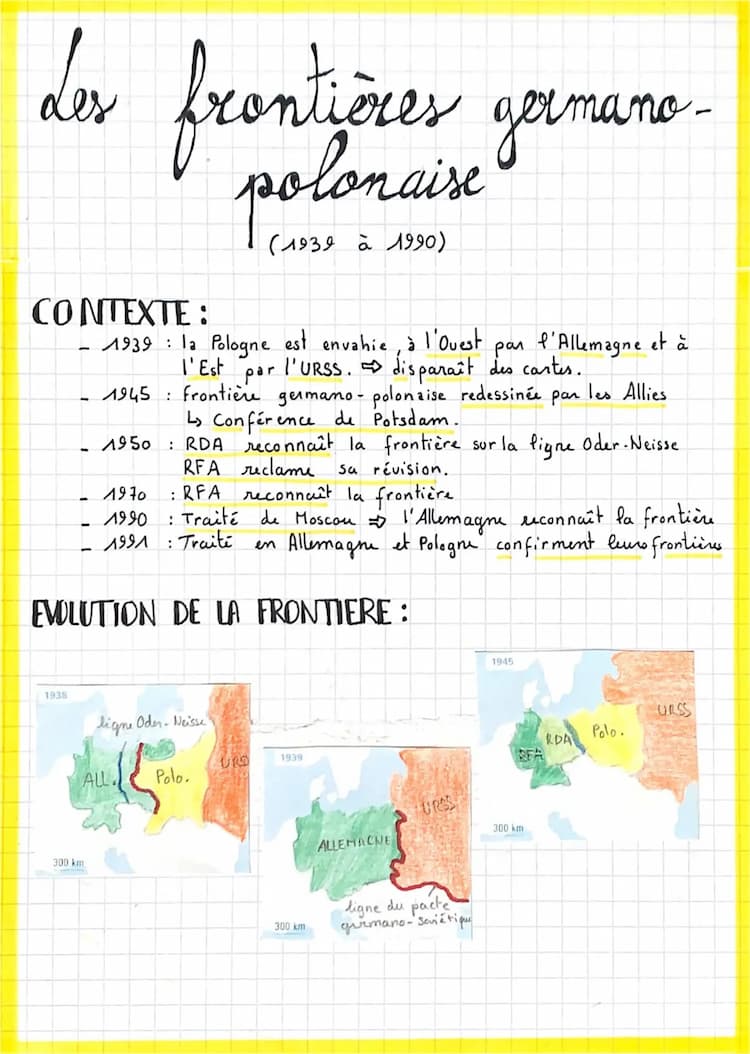 Les frontières germano-
polonaise
(1939 à 1990)
CONTEXTE :
- 1939 : la Pologne est envahie, à l'Ouest par l'Allemagne et à
l'Est par l'URSS. ⇨ disparaît des cartes.
- 1945 : frontière germano-polonaise redessinée par les Allies
↳ Conférence de Potsdam.
- 1950 : RDA reconnaît la frontière sur la ligne Oder-Neisse
RFA reclame sa révision.
- 1970 : RFA reconnaît la frontière
- 1990 : Traité de Moscou ⇨ l'Allemagne reconnaît la frontière
- 1991 : Traité en Allemagne et Pologne confirment leurs frontières
EVOLUTION DE LA FRONTIERE :
1938
ligne Oder-Neisse
ALL.
Polo.
URSS
300 km
1939
ALLEMAGNE
URSS
ligne du pacte
germano-soviétique
300 km
1945
RFA
RDA
Polo.
URSS
300 km